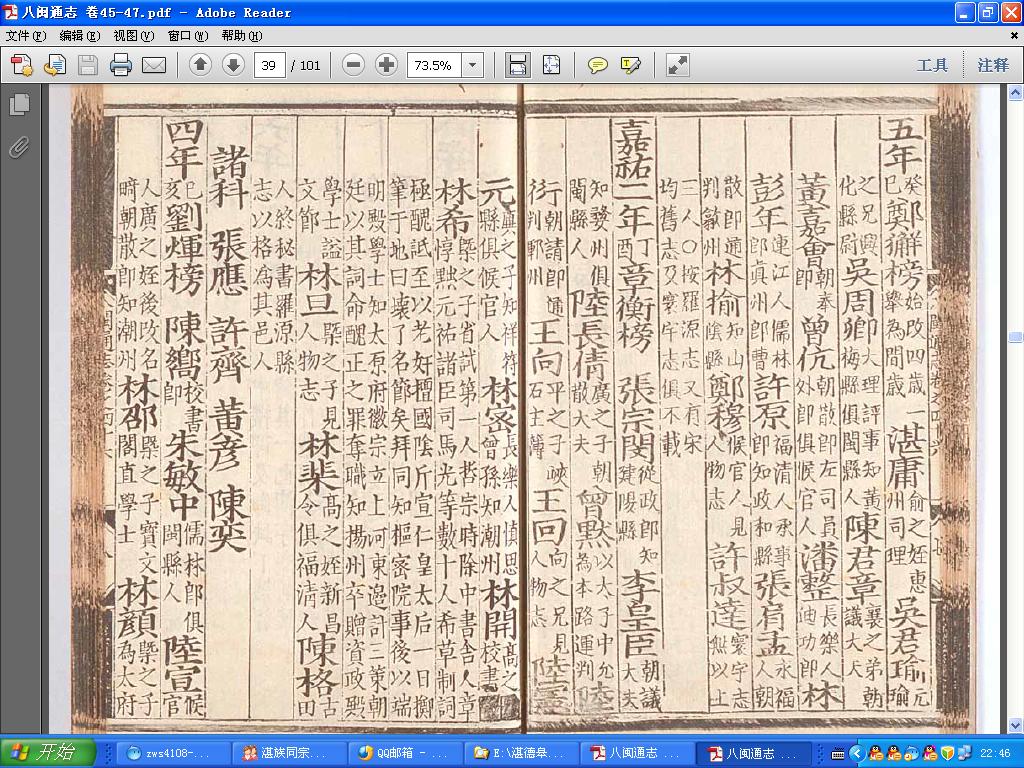 八闽通志 卷45-47.pdf - Adobe Reader
文件(F) 编辑(E) 视图(V) 窗口(W) 帮助(H)
39 / 101 73.5% 工具 注释
五年 癸巳 鄭獬榜 始改四歲一舉為間歲 湛庸 俞之姪惠州司理 吳君瑜 元瑜
之兄興化縣尉 吳周卿 大理評事知黃梅縣俱閩縣人 陳君章 襄之弟朝議大夫
黃嘉會 朝奉郎 曾伉 朝散郎左司員外郎俱候官人 潘整 長樂人迪功郎 林
彭年 連江人儒林郎真州郎曹 許原 福清人承事郎知政和縣 張肩孟 永福人朝
散郎通判篆州 林揄 知山陰縣 鄭穆 候官人見人物志 許叔達 寰宇志無以上
三人○按羅源志又有宋均舊志及寰宇志俱不載
嘉祐二年 丁酉 章衡榜 張宗閔 從政郎知建陽縣 李皇臣 朝議大夫
知婺州俱閩縣人 陸長倩 廣之子朝散大夫 曾默 以太子中允為本路運判 陸
衍 朝請郎通判鄆州 王向 平之子峽石主簿 王回 向之兄見人物志 陸宣
元 廣之子知祥符縣俱候官人 林宻 長樂人慎思曾孫知潮州 林開 高之 校書
林希 槩之子省試第一人哲宗時除中書舍人章惇黙元祐諸臣司馬光等數十人希草制詞
極醜詆至以老奸擅國陰斥宣仁皇太后一日擲筆于地曰壞了名節矣拜同知樞密院事後以端
明殿學士知太原府徽宗立上河東邊計三策朝廷以其詞命醜正之罪奪職知揚州卒贈資政殿
學士謚文節 林旦 槩之子見人物志 林棐 高之姪新昌令俱福清人 陳格 古田
人終秘書羅源縣志以格為其邑人
諸科 張應 許齊 黃彦 陳奕
四年 己亥 劉煇榜 陳嚮 校書郎 朱敏中 儒林郎俱閩縣人 陸宣 候
人廣之姪後改名暭朝散郎知潮州 林邵 槩之子寶文閣直學士 林顏 槩之子為太府
开始 zws4108-... 湛族同宗... QQ邮箱 - ... E:\湛德皋... 八闽通志 ... 八闽通志 ... 22:46